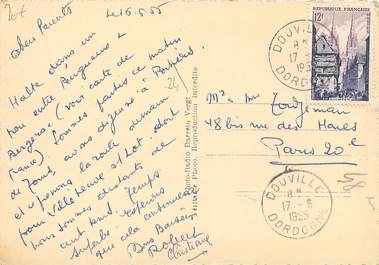 Le 16.6.55
Chers Parents
Halte dans un
pou entre Périgueux &
Bergerac (voir carte de
France). Sommes partis ce matin
de fond, avons déjeuné à Poitiers,
et reprenons la route demain
pour Villeneuve s/Lot, dont
nous sommes distants
Temps
superbe, espérons
que cela continuera
Bons Baisers
Robert
Christiane
Photo-Radio Barreto Vergt
Véritable Photo. Reproduction Interdite
REPUBLIQUE FRANÇAISE
12F
DOUVILLE
17 - 6
1955
DORDOGNE
Mr & Mme Tordjeman
48 bis rue des Haies
Paris 20e
DOUVILLE
17 - 6
1955
DORDOGNE